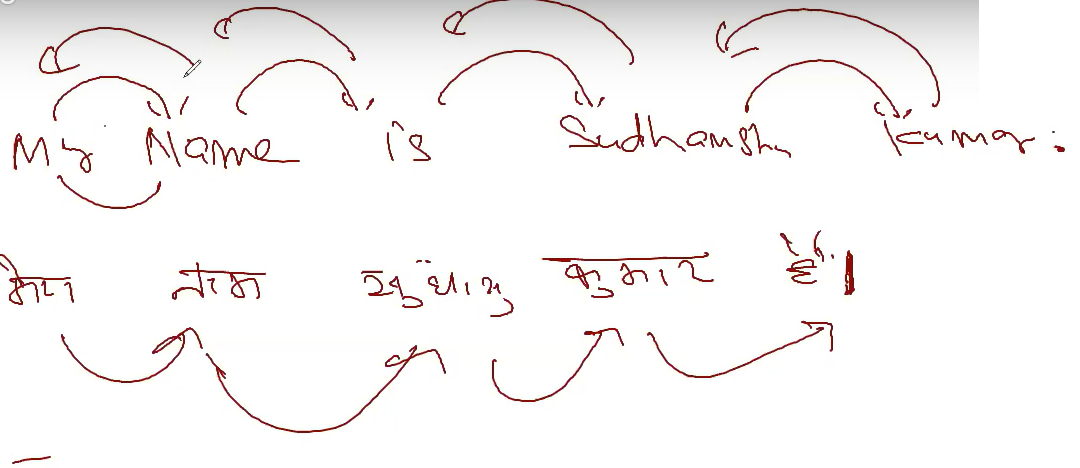 My Name is Sudhanshu kumar.
मेरा नाम सुधांशु कुमार है।